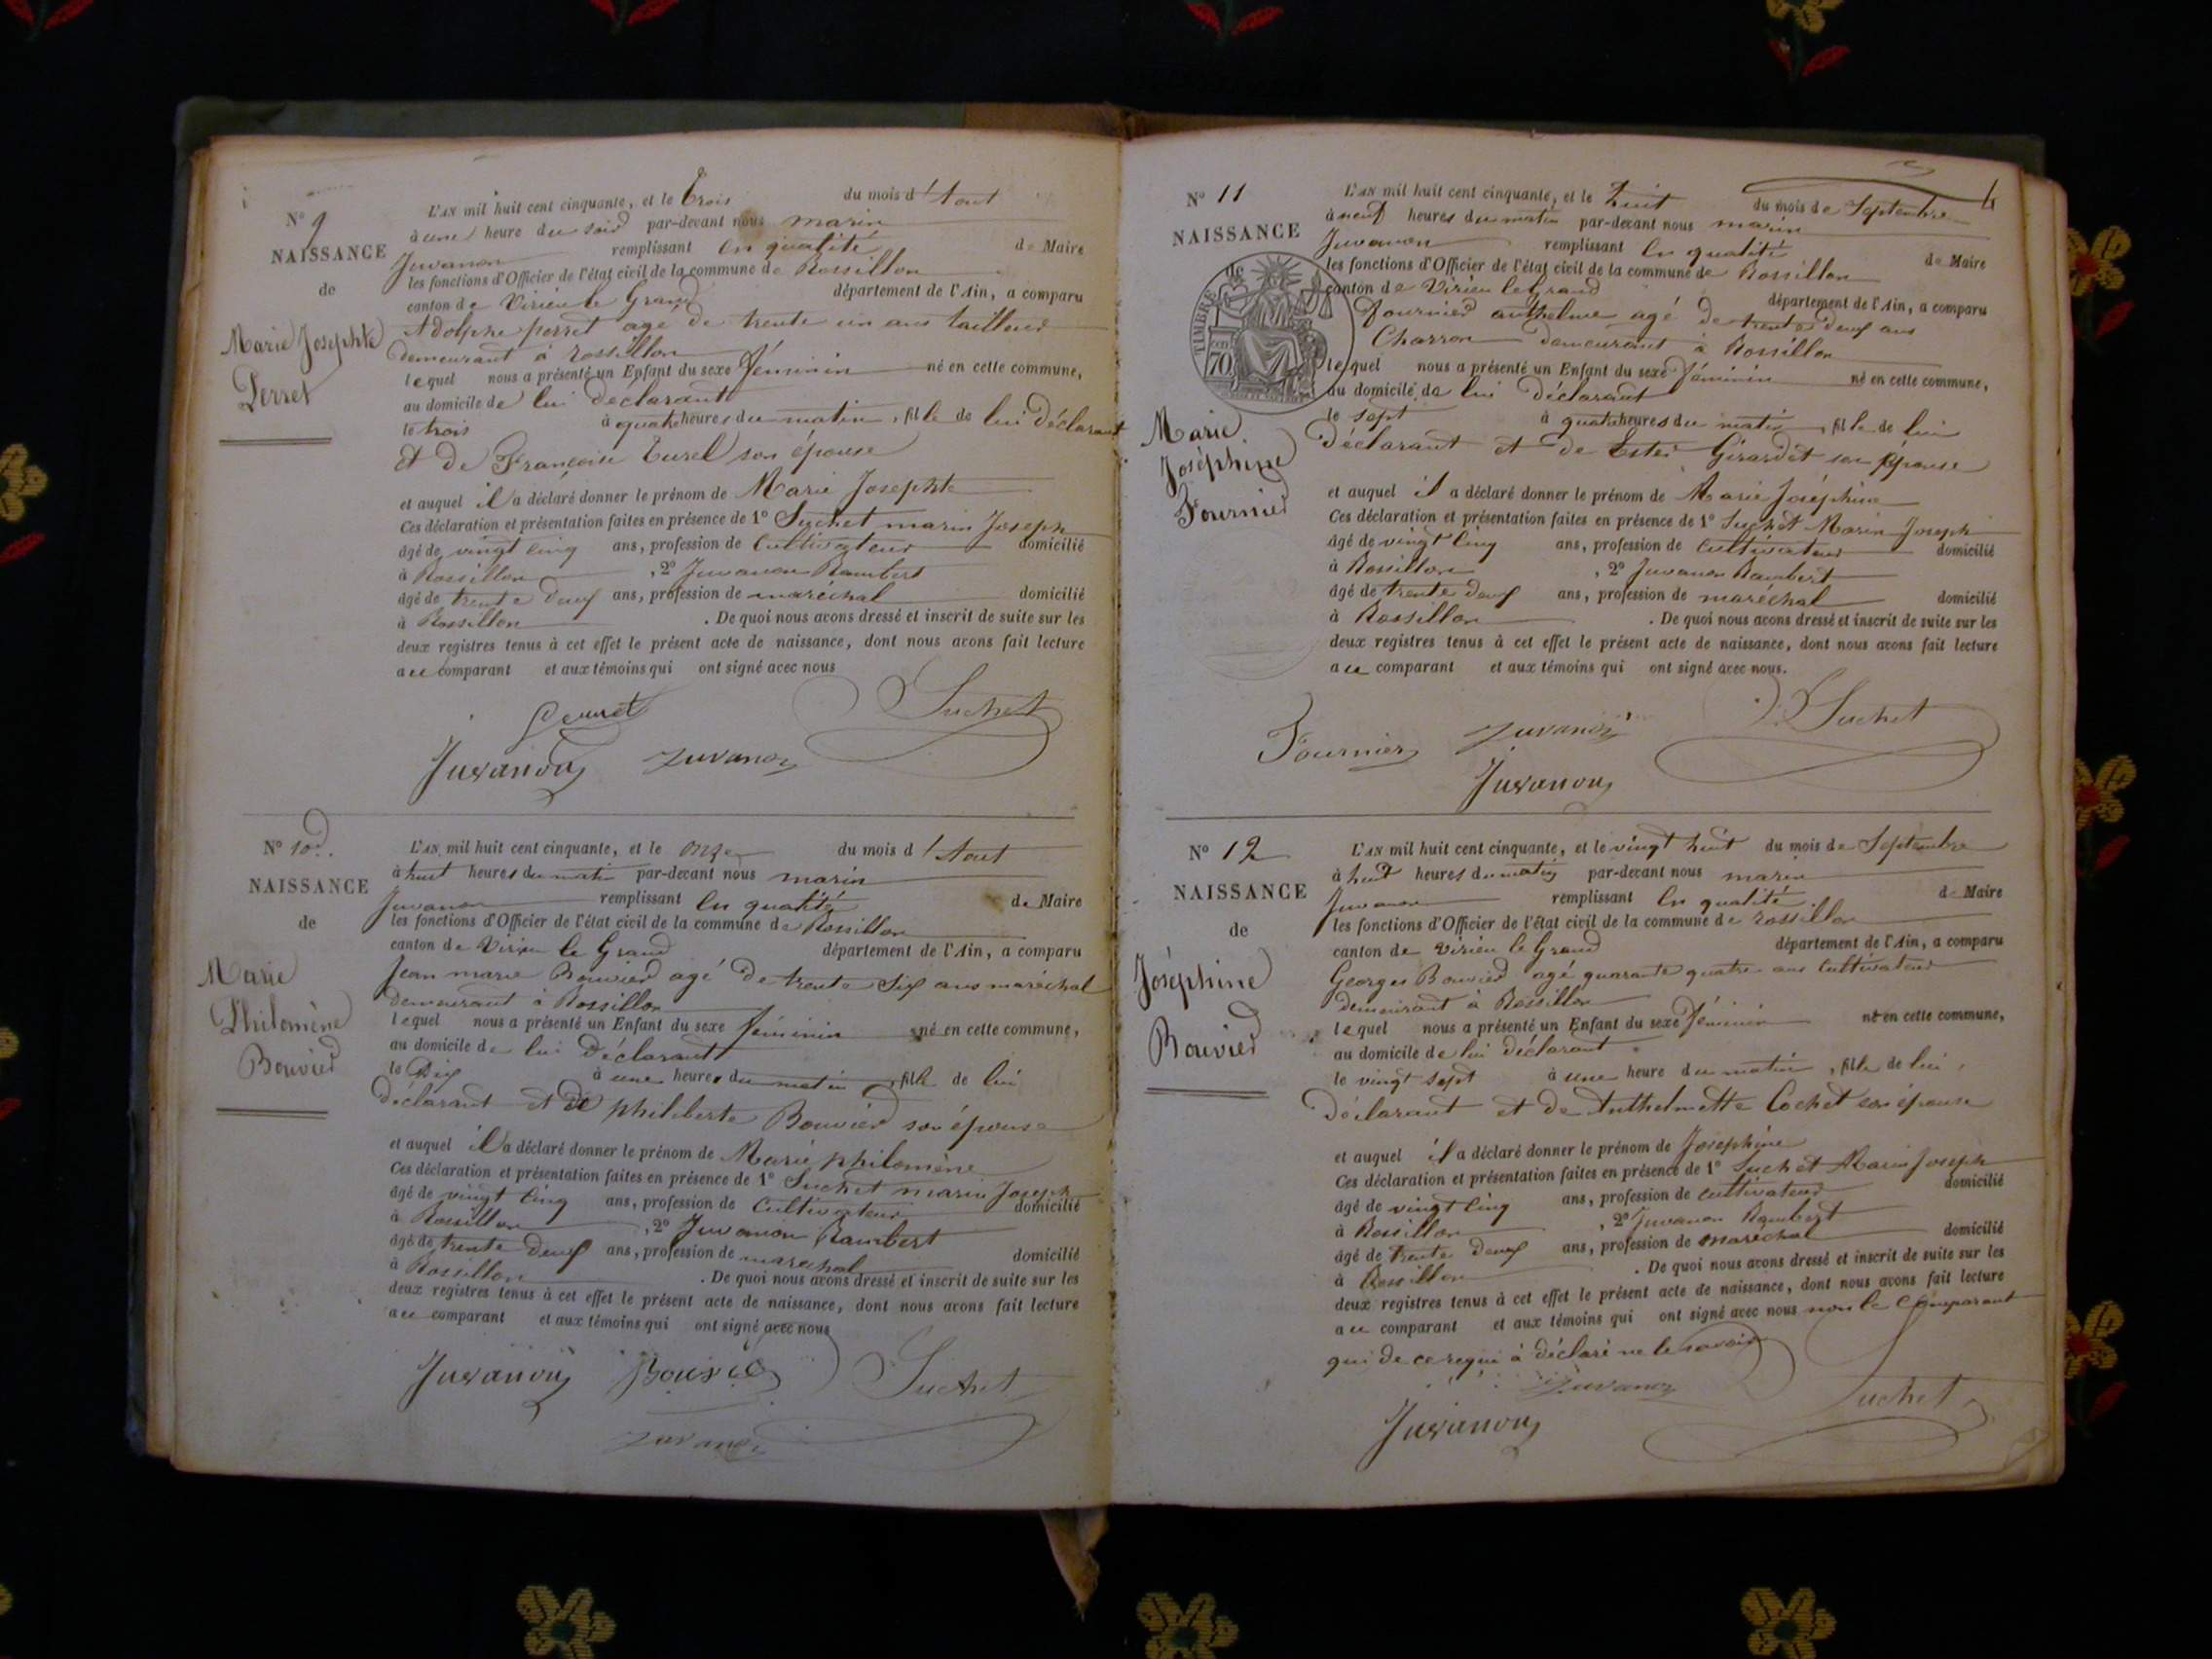 N° 9
NAISSANCE
de
Marie Josephte
Perret
L'AN mil huit cent cinquante, et le trois du mois d'Aout
à une heure du soir par-devant nous marin
Juvanon remplissant en qualité de Maire
les fonctions d'Officier de l'état civil de la commune de Rossillon
canton de Virieu le Grand département de l'Ain, a comparu
Adolphe perret agé de trente un ans tailleur
demeurant à rossillon
lequel nous a présenté un Enfant du sexe féminin né en cette commune,
au domicile de lui déclarant
le trois à quatre heures du matin, fille de lui déclarant
et de Françoise Curel son épouse
et auquel il a déclaré donner le prénom de Marie Josephte
Ces déclaration et présentation faites en présence de 1° Suchet marin Joseph
âgé de vingt cinq ans, profession de Cultivateur domicilié
à Rossillon, 2° Juvanon Rambert
âgé de trente deux ans, profession de maréchal domicilié
à Rossillon. De quoi nous avons dressé et inscrit de suite sur les
deux registres tenus à cet effet le présent acte de naissance, dont nous avons fait lecture
au comparant et aux témoins qui ont signé avec nous
Perret Suchet
Juvanon Juvanon
N° 10
NAISSANCE
de
Marie
Philomène
Bouvier
L'AN mil huit cent cinquante, et le onze du mois d'Aout
à huit heures du matin par-devant nous marin
Juvanon remplissant en qualité de Maire
les fonctions d'Officier de l'état civil de la commune de Rossillon
canton de Virieu le Grand département de l'Ain, a comparu
Jean marie Bouvier agé de trente six ans maréchal
demeurant à Rossillon
lequel nous a présenté un Enfant du sexe féminin né en cette commune,
au domicile de lui déclarant
le dix à une heure du matin, fille de lui
déclarant et de philiberte Bouvier son épouse
et auquel il a déclaré donner le prénom de Marie philomène
Ces déclaration et présentation faites en présence de 1° Suchet marin Joseph
âgé de vingt cinq ans, profession de Cultivateur domicilié
à Rossillon, 2° Juvanon Rambert
âgé de trente deux ans, profession de maréchal domicilié
à Rossillon. De quoi nous avons dressé et inscrit de suite sur les
deux registres tenus à cet effet le présent acte de naissance, dont nous avons fait lecture
au comparant et aux témoins qui ont signé avec nous
Juvanon Bouvier Suchet
Juvanon
N° 11
NAISSANCE
de
TIMBRE
70
Marie
Joséphine
Fournier
L'AN mil huit cent cinquante, et le huit du mois de Septembre
à neuf heures du matin par-devant nous marin
Juvanon remplissant en qualité de Maire
les fonctions d'Officier de l'état civil de la commune de Rossillon
canton de Virieu le Grand département de l'Ain, a comparu
Fournier anthelme agé de trente deux ans
Charron demeurant à Rossillon
lequel nous a présenté un Enfant du sexe féminin né en cette commune,
au domicile de lui déclarant
le sept à quatre heures du matin, fille de lui
Déclarant et de Ester Girardet son épouse
et auquel il a déclaré donner le prénom de Marie Joséphine
Ces déclaration et présentation faites en présence de 1° Suchet Marin Joseph
âgé de vingt cinq ans, profession de cultivateur domicilié
à Rossillon, 2° Juvanon Rambert
âgé de trente deux ans, profession de maréchal domicilié
à Rossillon. De quoi nous avons dressé et inscrit de suite sur les
deux registres tenus à cet effet le présent acte de naissance, dont nous avons fait lecture
au comparant et aux témoins qui ont signé avec nous.
Fournier Juvanon Suchet
Juvanon
N° 12
NAISSANCE
de
Joséphine
Bouvier
L'AN mil huit cent cinquante, et le vingt huit du mois de Septembre
à huit heures du matin par-devant nous marin
Juvanon remplissant en qualité de Maire
les fonctions d'Officier de l'état civil de la commune de rossillon
canton de virieu le Grand département de l'Ain, a comparu
Georges Bouvier agé quarante quatre ans Cultivateur
demeurant à Rossillon
lequel nous a présenté un Enfant du sexe féminin né en cette commune,
au domicile de lui déclarant
le vingt sept à une heure du matin, fille de lui
déclarant et de Anthelmette Cochet son épouse
et auquel il a déclaré donner le prénom de Josephine
Ces déclaration et présentation faites en présence de 1° Suchet Marin Joseph
âgé de vingt cinq ans, profession de cultivateur domicilié
à Rossillon, 2° Juvanon Rambert
âgé de trente deux ans, profession de maréchal domicilié
à Rossillon. De quoi nous avons dressé et inscrit de suite sur les
deux registres tenus à cet effet le présent acte de naissance, dont nous avons fait lecture
au comparant et aux témoins qui ont signé avec nous non le Comparant
qui de ce requi à déclaré ne le savoir
Juvanon Suchet
Juvanon